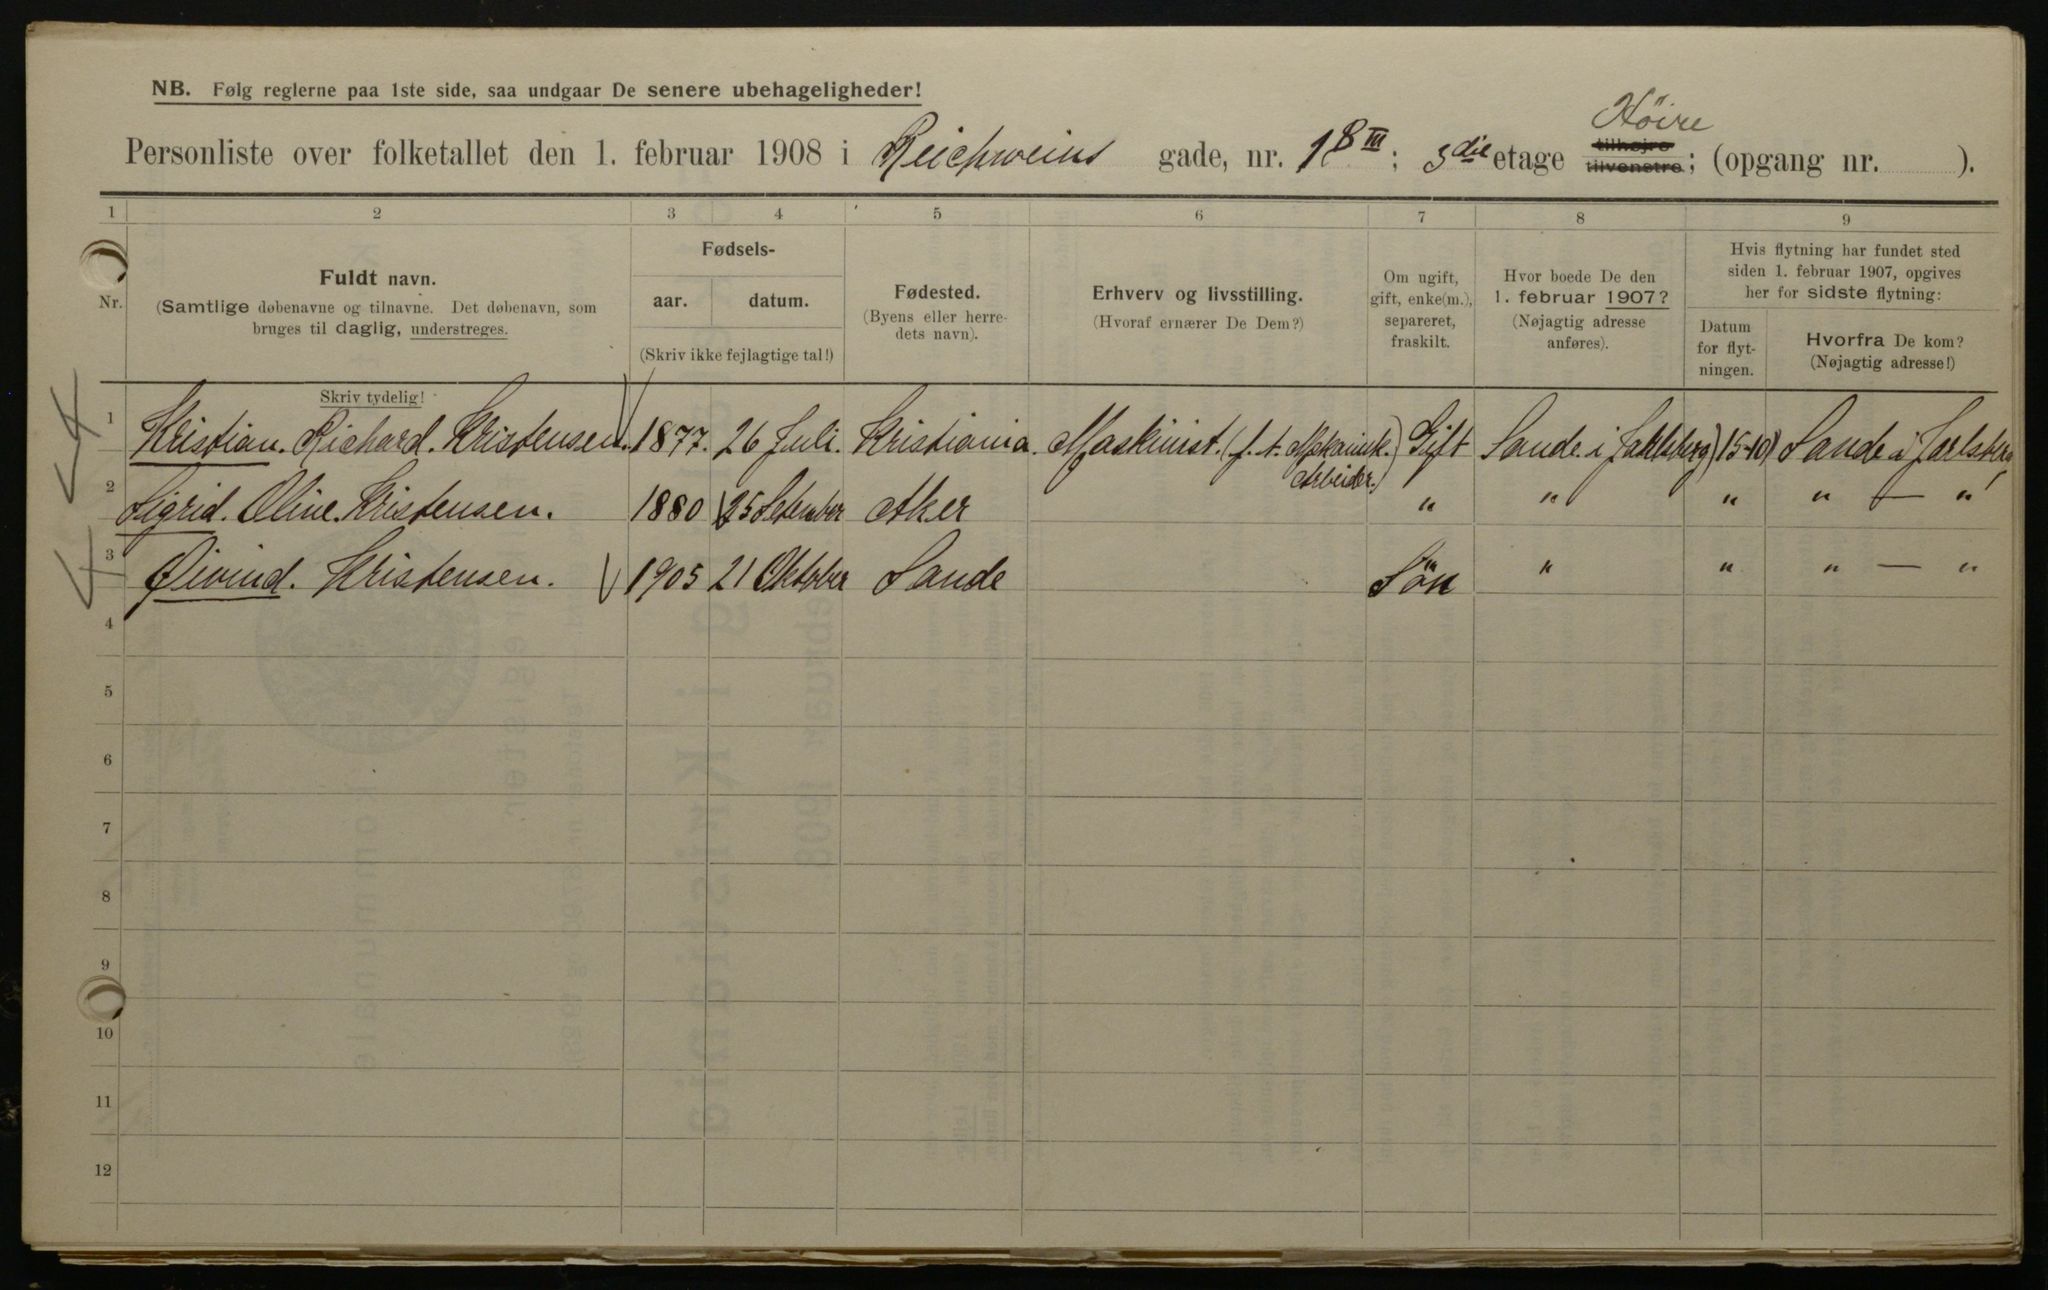 NB. Følg reglerne paa 1ste side, saa undgaar De senere ubehageligheder!
Høire
Personliste over folketallet den 1. februar 1908 i Reichweins gade, nr. 18 III; 3die etage tilhøjre tilvenstre; (opgang nr. ).
1 2 3 4 5 6 7 8 9
Nr.
Fuldt navn.
(Samtlige døbenavne og tilnavne. Det døbenavn, som
bruges til daglig, understreges.
Fødsels-
aar. datum.
(Skriv ikke fejlagtige tal!)
Fødested.
(Byens eller herre-
dets navn).
Erhverv og livsstilling.
(Hvoraf ernærer De Dem?)
Om ugift,
gift, enke(m.),
separeret,
fraskilt.
Hvor boede De den
1. februar 1907?
(Nøjagtig adresse
anføres).
Hvis flytning har fundet sted
siden 1. februar 1907, opgives
her for sidste flytning:
Datum
for flyt-
ningen.
Hvorfra De kom?
(Nøjagtig adresse!)
Skriv tydelig!
1 Kristian. Richard. Kristensen. 1877. 26 Juli. Kristiania. Maskinist. (f. t. Mekanisk. Arbeider.) Gift Sande i Jarlsberg 15-10 Sande i Jarlsberg
2 Sigrid. Oline. Kristensen. 1880 25 Setember Aker " " " " — "
3 Øivind. Kristensen. 1905 21 Oktober Sande Sön " " " — "
4
5
6
7
8
9
10
11
12